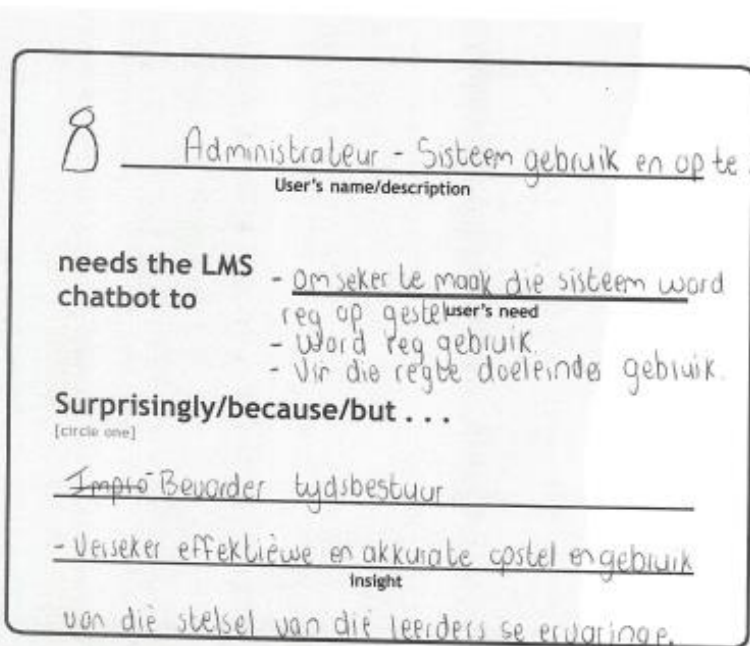 Administrateur - Sisteem gebruik en op te
User's name/description
needs the LMS
chatbot to
- om seker te maak die sisteem word
reg op gestel
user's need
- Word reg gebruik
- Vir die regte doeleindes gebruik.
Surprisingly/because/but . . .
[circle one]
Impro Bevorder tydsbestuur
- Verseker effektiewe en akkurate opstel en gebruik
insight
van die stelsel van die leerders se ervaringe.